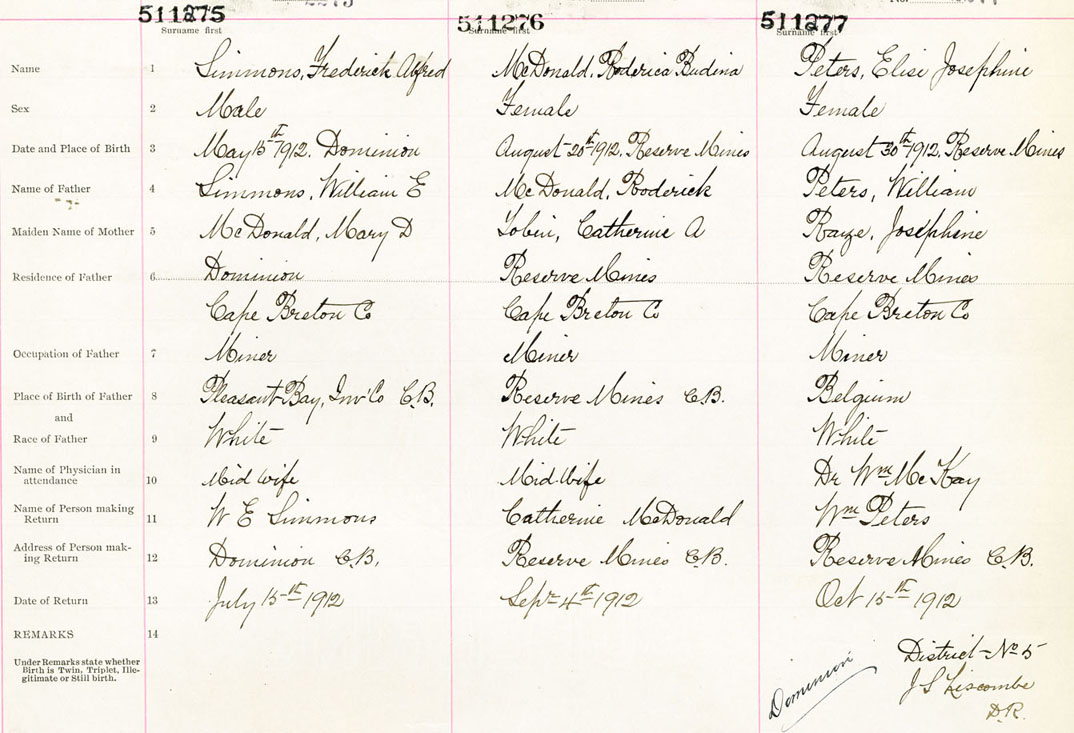 511275 511276 511277
Surname first Surname first Surname first
Name 1 Simmons, Frederick Alfred McDonald, Roderica Budina Peters, Elise Josephine
Sex 2 Male Female Female
Date and Place of Birth 3 May 15th 1912. Dominion August 20th 1912, Reserve Mines August 30th 1912, Reserve Mines
Name of Father 4 Simmons, William E McDonald, Roderick Peters, William
Maiden Name of Mother 5 McDonald, Mary D Tobin, Catherine A Josephine
Residence of Father 6 Dominion Reserve Mines Reserve Mines
Cape Breton Co Cape Breton Co Cape Breton Co
Occupation of Father 7 Miner Miner Miner
Place of Birth of Father 8 Pleasant Bay, Inv Co C.B. Reserve Mines C.B. Belgium
and
Race of Father 9 White White White
Name of Physician in
attendance 10 Mid wife Mid-wife Dr Wm McKay
Name of Person making
Return 11 W E Simmons Catherine McDonald Wm Peters
Address of Person mak-
ing Return 12 Dominion C.B. Reserve Mines C.B. Reserve Mines C.B.
Date of Return 13 July 15th 1912 Sept 4th 1912 Oct 15th 1912
REMARKS 14
Under Remarks state whether
Birth is Twin, Triplet, Ille-
gitimate or Still birth.
Dominion
District No 5
J S Liscombe
D.R.